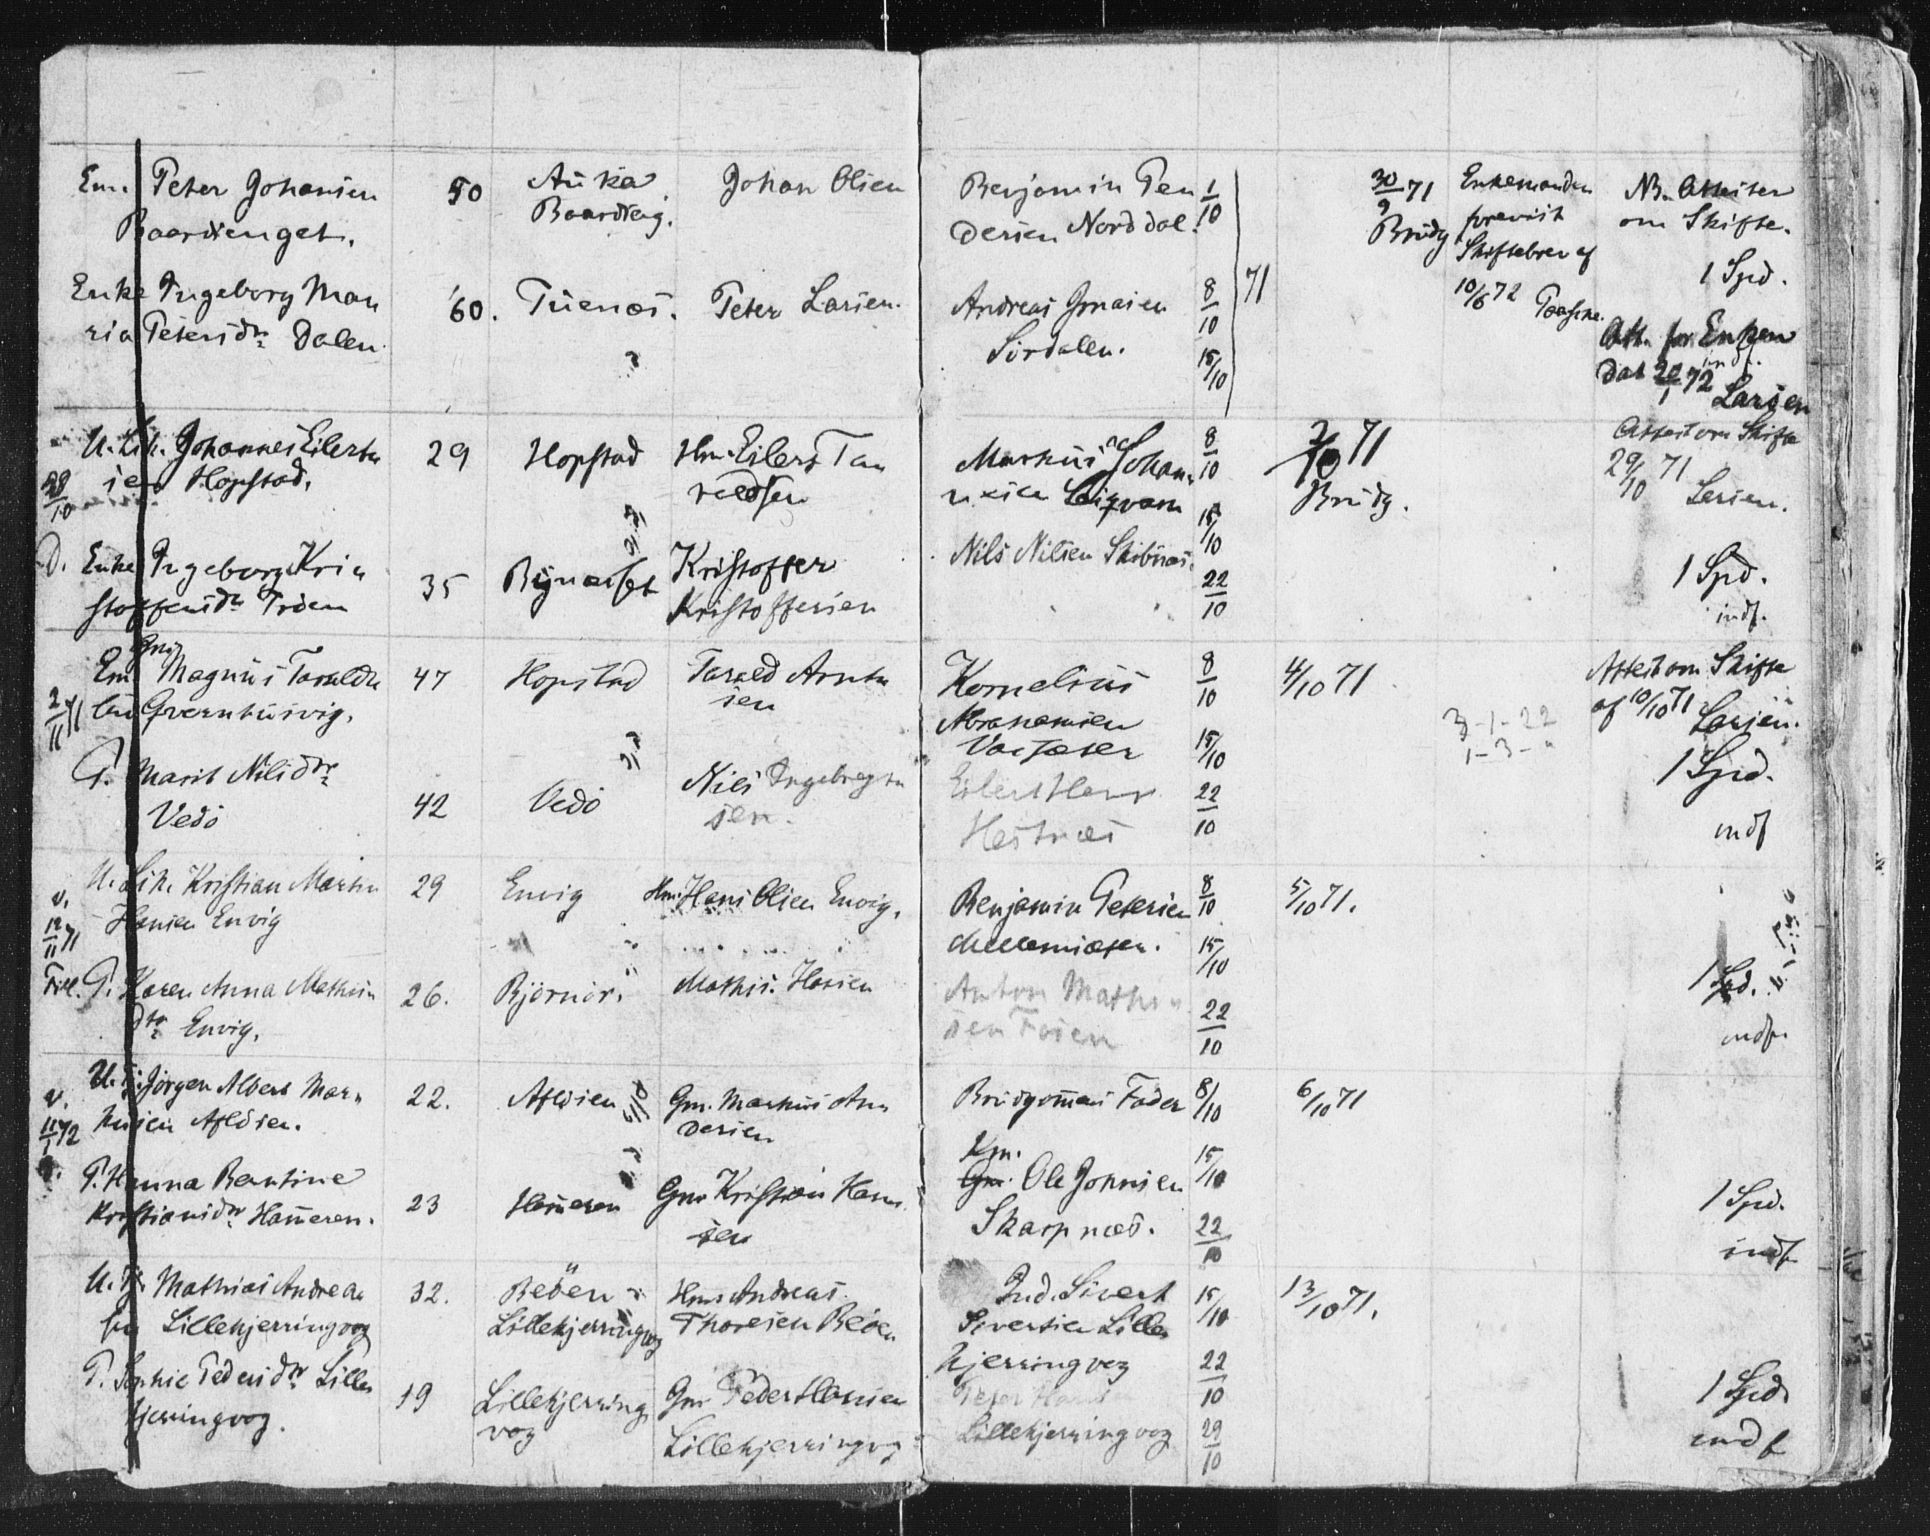 Em. Peter Johansen
Baardsenget.
50
Auka
Baardseng.
Johan Olsen
Benjamin Peu
dersen Norddal.
1/10
30/9 71
Brudg
Enkemanden
forevist
Skiftebrev af
10/6 72
NB. Attester
om Skifte.
1 Spd.
Enke Ingeborg Mar
ria Petersdtr Dalen
60.
Tuenæs.
Peter Larsen.
Andreas Jonasen
Sørdalen.
8/10
15/10
71
Att. for Enken
indf.
dat 20/1 72
Larsen
U. Johannes Eilert
sen Hopstad.
29/10
29
Hopstad
Hm. Eilert Tar
aldsen
Markus Johan
8/10
15/10
2/10 71
Brudg.
Attest om Skifte
29/10 71
Larsen.
D. Enke Ingeborg Kri
stoffersdtr
35
Bynæsset
Kristoffer
Kristoffersen
Nils Nilsen Skibnæs.
22/10
1 Spd.
indf.
Gm
Em. Magnus Taralds
sen Qvernhusvig.
2/11 71
47
Hopstad
Tarald Arnt
sen
Kornelius
Abrahamsen
Vassæter
8/10
15/10
4/10 71
3-1-22
1-3-"
Attest om Skifte
af 10/10 71
Larsen.
P. Marit Nilsdtr
Vedø
42
Vedø
Nils Ingebrigt
sen.
Eilert Hans
Hestnæs
22/10
1 Spd.
indf
v.
12/11 71
Till.
U. Kristian Martin
Hansen Envig
29
Envig
Hm. Hans Olsen Envig.
Benjamin Petersen
Mellemsæter.
8/10
15/10
5/10 71.
P. Karen Anna Mathis
dtr Envig.
26.
Bjørnør.
Mathis Hansen
Anton Mathi
sen
22/10
1 Spd.
indf.
v.
11/1 72
U. Jørgen Albert Mar
kusen Afløsen.
22.
Afløsen
Gm. Markus An
dersen
Brudgommens Fader
8/10
6/10 71
P. Hanna Bentine
Kristiansdtr Hammeren.
23
Hammeren
Gm Kristian Han
sen
Km.
Gm. Ole Johnsen
Skarpnæs.
15/10
22/10
1 Spd.
indf
U. Mathias Andrea
sen Lillekjerringvog
32.
Beöen
Lillekjerringvog
Hm Andreas
Thoresen Beöen
Ind. Sivert
Sivertsen Lille
kjerringvog
15/10
22/10
13/10 71.
P. Sophie Pedersdtr Lille
kjerringvog.
19
Lillekjerring
vog
Gm Peder Hansen
Lillekjerringvog
Peter Hans
Lillekjerringvog
29/10
1 Spd.
indf